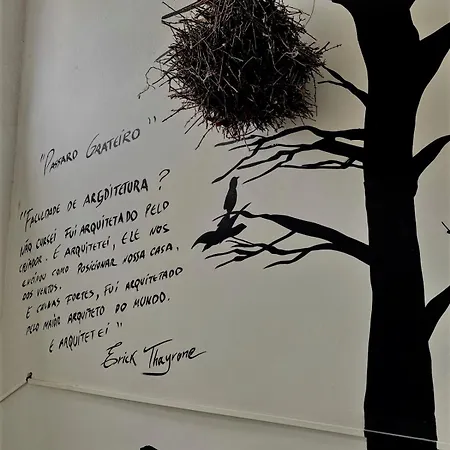 "PASSARO GRATEIRO"
"FACULDADE DE ARQDITETURA?
NÃO CURSEI FUI ARQUITETADO PELO
CRIADOR. E ARQUITETEI, ELE NOS
ENSINOU COMO POSICIONAR NOSSA CASA.
DOS VENTOS.
E CHUVAS FORTES, FUI ARQUITETADO
PELO MAIOR ARQUITETO DO MUNDO.
E ARQUITETEI"
Erick Thayrone